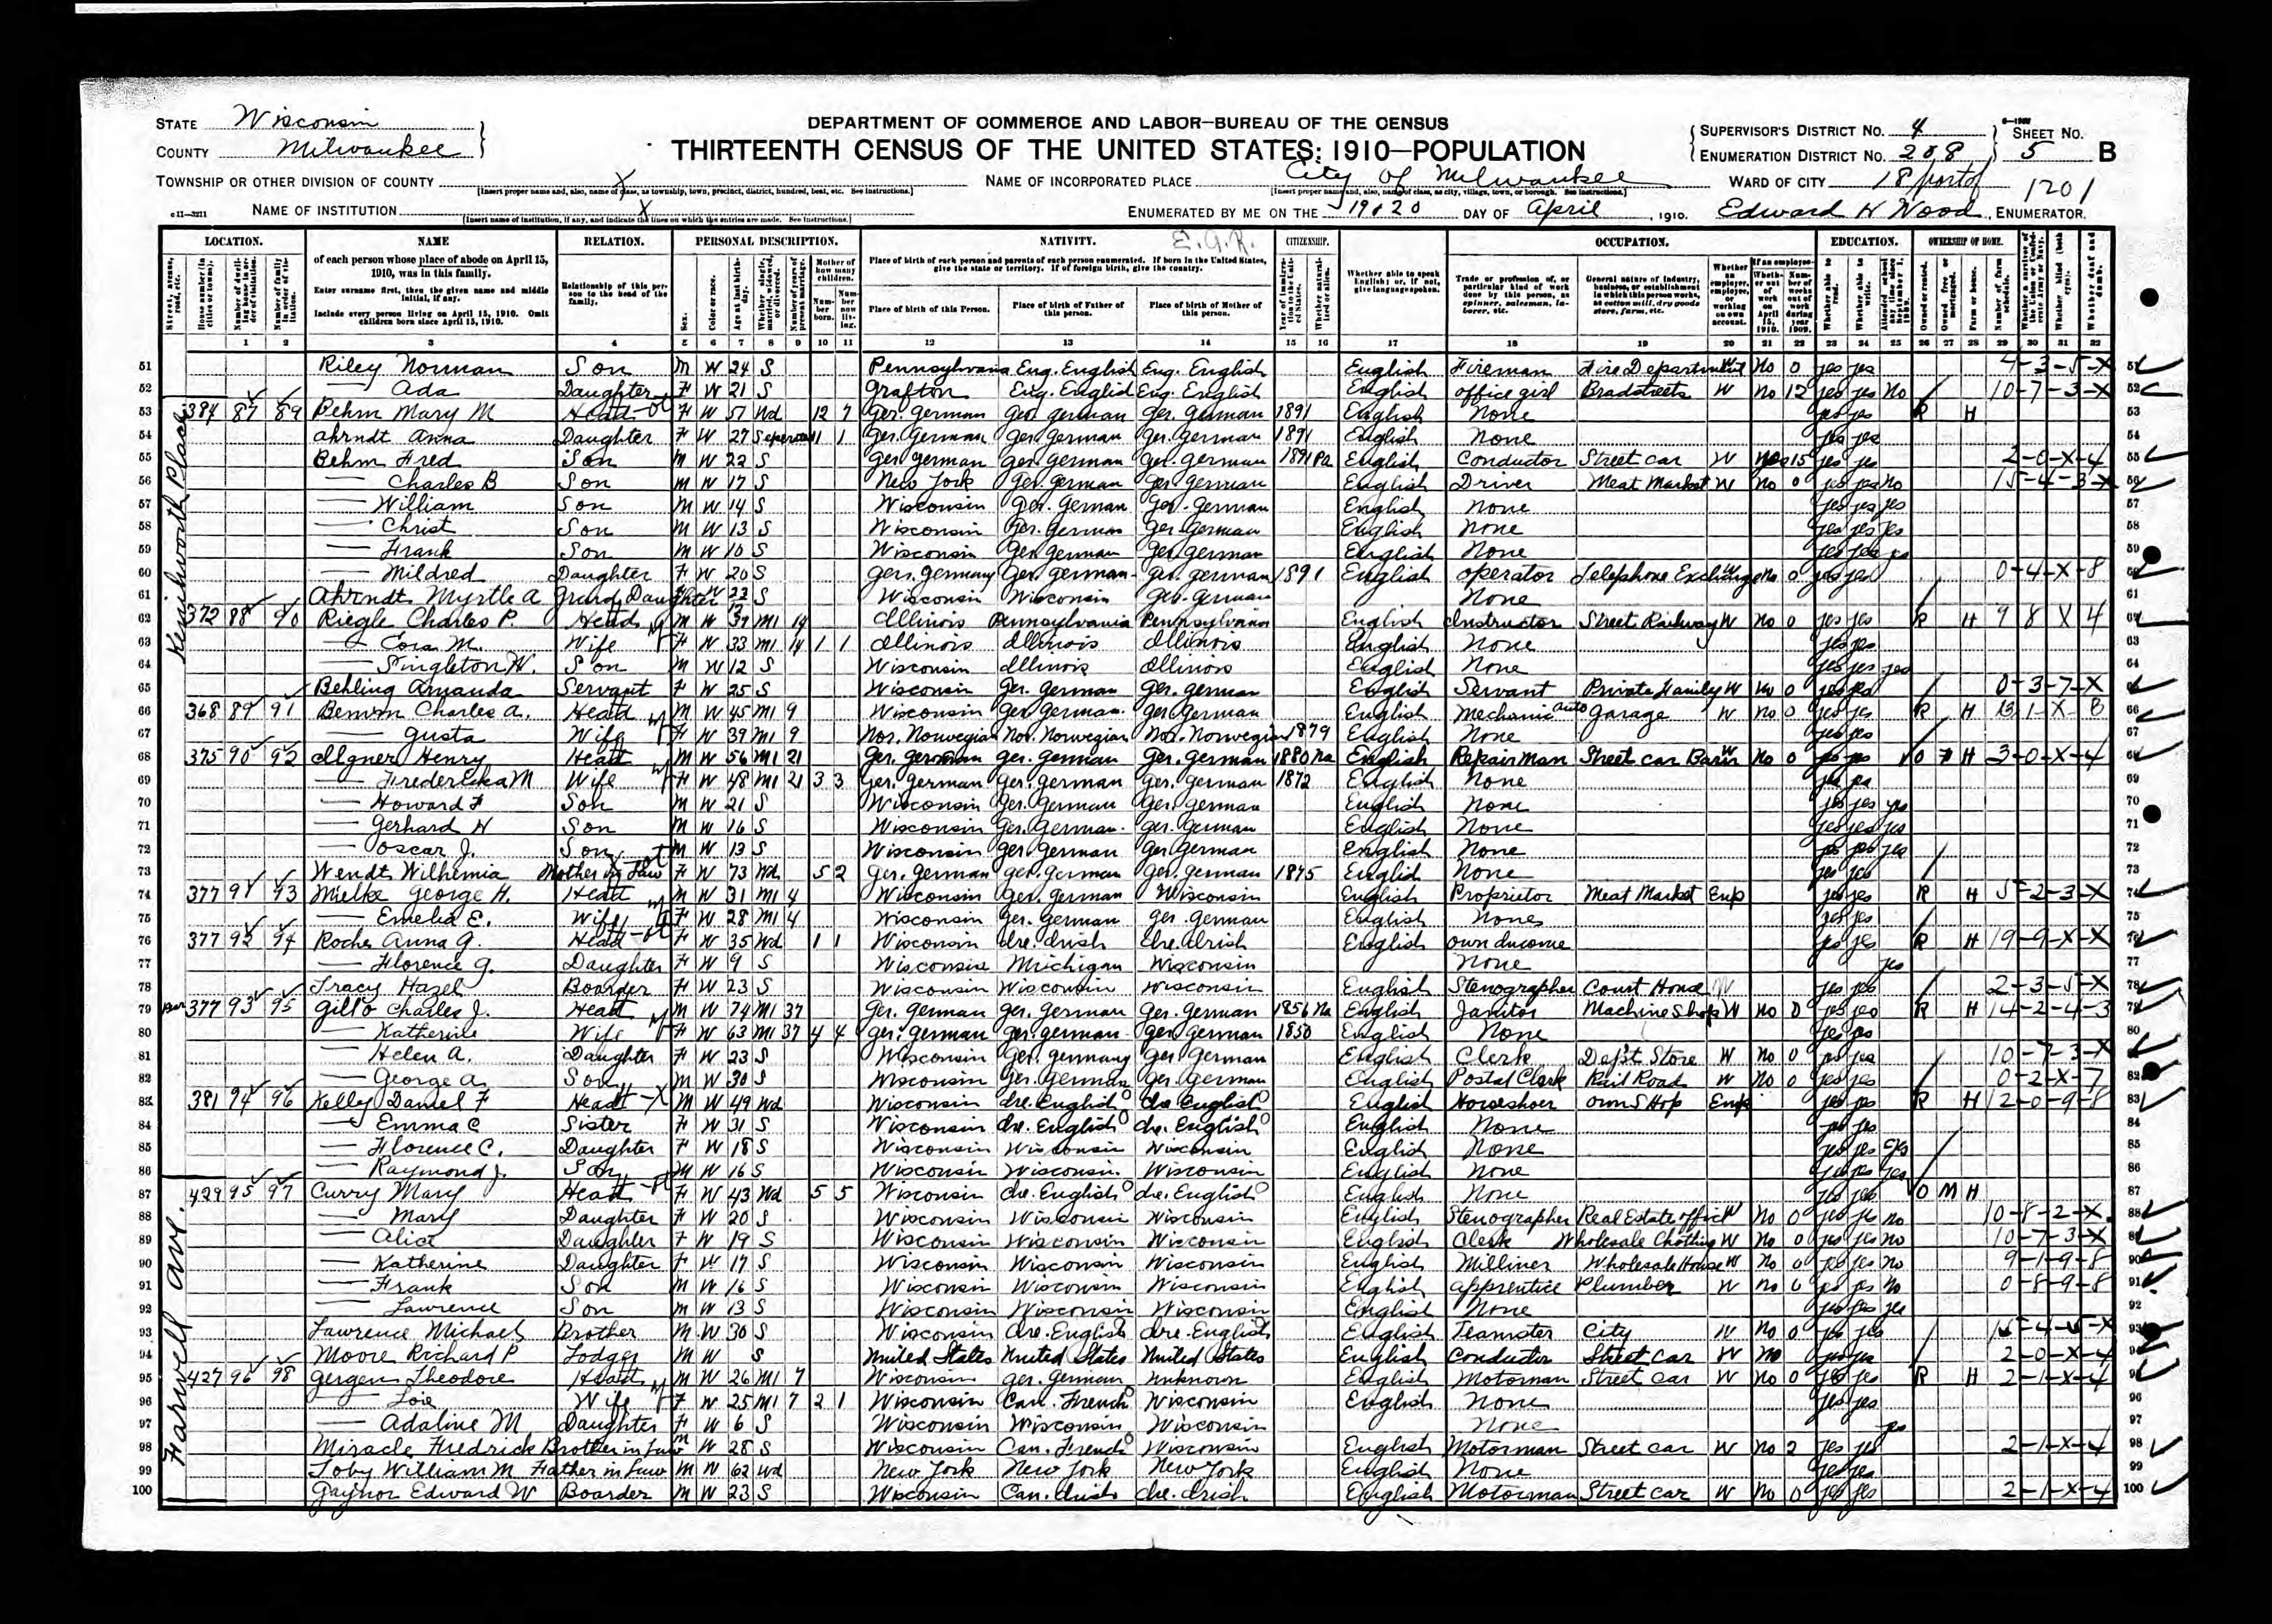 STATE Wisconsin
COUNTY Milwaukee
DEPARTMENT OF COMMERCE AND LABOR—BUREAU OF THE CENSUS
THIRTEENTH CENSUS OF THE UNITED STATES: 1910—POPULATION
SUPERVISOR'S DISTRICT No. 4
ENUMERATION DISTRICT No. 208
SHEET No. 5 B
TOWNSHIP OR OTHER DIVISION OF COUNTY X
[Insert proper name and, also, name of class, as township, town, precinct, district, hundred, beat, etc. See instructions.]
NAME OF INCORPORATED PLACE City of Milwaukee
[Insert proper name and, also, name of class, as city, village, town, or borough. See instructions.]
WARD OF CITY 18 part of
1201
c11—3211
NAME OF INSTITUTION X
[Insert name of institution, if any, and indicate the lines on which the entries are made. See instructions.]
ENUMERATED BY ME ON THE 19 & 20 DAY OF April, 1910. Edward H Wood, ENUMERATOR.
LOCATION. NAME RELATION. PERSONAL DESCRIPTION. NATIVITY. CITIZENSHIP. OCCUPATION. EDUCATION. OWNERSHIP OF HOME.
of each person whose place of abode on April 15, 1910, was in this family.
Enter surname first, then the given name and middle initial, if any.
Include every person living on April 15, 1910. Omit children born since April 15, 1910.
Relationship of this person to the head of the family.
Place of birth of each person and parents of each person enumerated. If born in the United States, give the state or territory. If of foreign birth, give the country.
Place of birth of this Person. Place of birth of Father of this person. Place of birth of Mother of this person.
Whether able to speak English; or, if not, give language spoken.
Trade or profession of, or particular kind of work done by this person, as spinner, salesman, laborer, etc.
General nature of industry, business, or establishment in which this person works, as cotton mill, dry goods store, farm, etc.
1 2 3 4 5 6 7 8 9 10 11 12 13 14 15 16 17 18 19 20 21 22 23 24 25 26 27 28 29 30 31 32
Kenilworth Place
Farwell Ave.
51 Riley Norman Son M W 24 S Pennsylvania Eng. English Eng. English English Fireman Fire Department W No 0 yes yes 4-3-5-X
52 — Ada Daughter F W 21 S Grafton Eng. English Eng. English English office girl Bradstreets W No 12 yes yes No 10-7-3-X
53 384 87 89 Behm Mary M Head F W 51 Wd 12 7 Ger. German Ger. German Ger. German 1891 English None yes yes R H
54 Ahrndt Anna Daughter F W 27 1 1 Ger. German Ger. German Ger. German 1891 English None yes yes
55 Behm Fred Son M W 22 S Ger. German Ger. German Ger. German 1891 Pa English Conductor Street car W 15 yes yes 2-0-X-4
56 — Charles B Son M W 17 S New York Ger. German Ger. German English Driver Meat Market W No 0 yes yes No 15-4-3-X
57 — William Son M W 14 S Wisconsin Ger. German Ger. German English None yes yes yes
58 — Christ Son M W 13 S Wisconsin Ger. German Ger. German English None yes yes yes
59 — Frank Son M W 10 S Wisconsin Ger. German Ger. German English None yes yes yes
60 — Mildred Daughter F W 20 S Ger. Germany Ger. German Ger. German 1891 English operator Telephone Exchange W No 0 yes yes 0-4-X-8
61 Ahrndt Myrtle A Grand Daughter W S Wisconsin Wisconsin Ger. German None
62 372 88 90 Riegle Charles P. Head M W 37 M1 14 Illinois Pennsylvania Pennsylvania English Instructor Street Railway W No 0 yes yes R H 9 8 X 4
63 — Cora M. Wife F W 33 M1 14 1 1 Illinois Illinois Illinois English None yes yes
64 — Singleton W. Son M W 12 S Wisconsin Illinois Illinois English None yes yes yes
65 Behling Amanda Servant F W 25 S Wisconsin Ger. German Ger. German English Servant Private Family W No 0 yes yes 0-3-7-X
66 368 89 91 Bemm Charles A. Head M W 45 M1 9 Wisconsin Ger. German Ger. German English Mechanic Auto Garage W No 0 yes yes R H 13 1-X-8
67 — Gusta Wife F W 39 M1 9 Nor. Norwegian Nor. Norwegian Nor. Norwegian 1879 English None yes yes
68 375 90 92 Ilgner Henry Head M W 56 M1 21 Ger. German Ger. German Ger. German 1880 Na English Repair Man Street car Barn W No 0 yes yes O F H 3-0-X-4
69 — Frederika M Wife F W 48 M1 21 3 3 Ger. German Ger. German Ger. German 1872 English None yes yes
70 — Howard F Son M W 21 S Wisconsin Ger. German Ger. German English None yes yes yes
71 — Gerhard H Son M W 16 S Wisconsin Ger. German Ger. German English None yes yes yes
72 — Oscar J. Son M W 13 S Wisconsin Ger. German Ger. German English None yes yes yes
73 Wendt Wilhemia Mother in Law F W 73 Wd 5 2 Ger. German Ger. German Ger. German 1875 English None yes yes
74 377 91 93 Mielke George H. Head M W 31 M1 4 Wisconsin Ger. German Wisconsin English Proprietor Meat Market Emp yes yes R H 5-2-3-X
75 — Emelia E. Wife F W 28 M1 4 Wisconsin Ger. German Ger. German English None yes yes
76 377 92 94 Roche Anna G. Head F W 35 Wd 1 1 Wisconsin Ire. Irish Ire. Irish English own Income yes yes R H 19-9-X-X
77 — Florence G. Daughter F W 9 S Wisconsin Michigan Wisconsin None yes
78 Tracy Hazel Boarder F W 23 S Wisconsin Wisconsin Wisconsin English Stenographer Court House W yes yes 2-3-5-X
79 Rear 377 93 95 Gilto Charles J. Head M W 74 M1 37 Ger. German Ger. German Ger. German 1856 Na English Janitor Machine Shop W No 0 yes yes R H 14-2-4-3
80 — Katherine Wife F W 63 M1 37 4 4 Ger. German Ger. German Ger. German 1850 English None yes yes
81 — Helen A. Daughter F W 23 S Wisconsin Ger. Germany Ger. German English Clerk Dept Store W No 0 yes yes 10-7-3-X
82 — George A. Son M W 30 S Wisconsin Ger. German Ger. German English Postal Clerk Rail Road W No 0 yes yes 0-2-X-7
83 381 94 96 Kelly Daniel F Head M W 49 Wd Wisconsin Ire. English Ire. English English Horseshoer own Shop Emp yes yes R H 2-0-9-8
84 — Emma C Sister F W 31 S Wisconsin Ire. English Ire. English English None yes yes
85 — Florence C. Daughter F W 18 S Wisconsin Wisconsin Wisconsin English None yes yes yes
86 — Raymond J. Son M W 16 S Wisconsin Wisconsin Wisconsin English None yes yes yes
87 429 95 97 Curry Mary Head F W 43 Wd 5 5 Wisconsin Ire. English Ire. English English None yes yes O M H
88 — Mary Daughter F W 20 S Wisconsin Wisconsin Wisconsin English Stenographer Real Estate office W No 0 yes yes no 10-8-2-X
89 — Alice Daughter F W 19 S Wisconsin Wisconsin Wisconsin English Clerk Wholesale Clothing W No 0 yes yes no 10-7-3-X
90 — Katherine Daughter F W 17 S Wisconsin Wisconsin Wisconsin English Milliner Wholesale House W No 0 yes yes no 9-1-9-8
91 — Frank Son M W 16 S Wisconsin Wisconsin Wisconsin English apprentice Plumber W No 0 yes yes No 0-8-9-8
92 — Lawrence Son M W 13 S Wisconsin Wisconsin Wisconsin English None yes yes yes
93 Lawrence Michael Brother M W 30 S Wisconsin Ire. English Ire. English English Teamster City W No 0 yes yes
94 Moore Richard P Lodger M W S United States United States United States English Conductor Street Car W No yes yes 2-0-X-4
95 427 96 98 Gergen Theodore Head M W 26 M1 7 Wisconsin Ger. German Unknown English Motorman Street car W No 0 yes yes R H 2-1-X-4
96 — Loie Wife F W 25 M1 7 2 1 Wisconsin Can. French Wisconsin English None yes yes
97 — Adaline M Daughter F W 6 S Wisconsin Wisconsin Wisconsin None yes
98 Miracle Fredrick Brother in Law M W 28 S Wisconsin Can. French Wisconsin English Motorman Street car W No 2 yes yes 2-1-X-4
99 Toby William M Father in Law M W 62 Wd New York New York New York English None yes yes
100 Gaynor Edward W Boarder M W 23 S Wisconsin Can. Irish Ire. Irish English Motorman Street car W No 0 yes yes 2-1-X-4